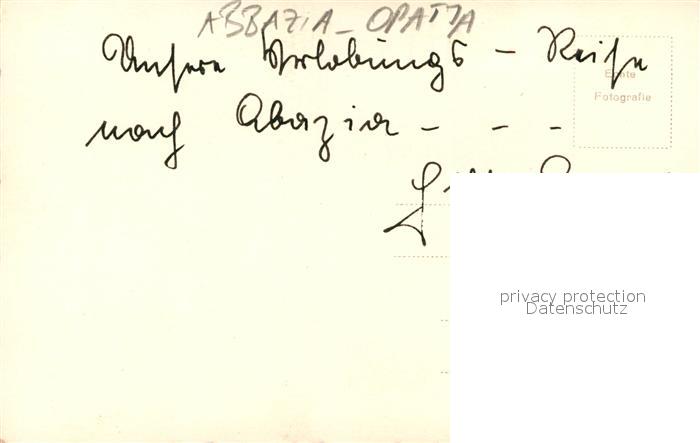 ABBAZIA - OPATIJA
Unsere Verlobungs - Reise
nach Abazia - - -
Echte
Fotografie
privacy protection
Datenschutz